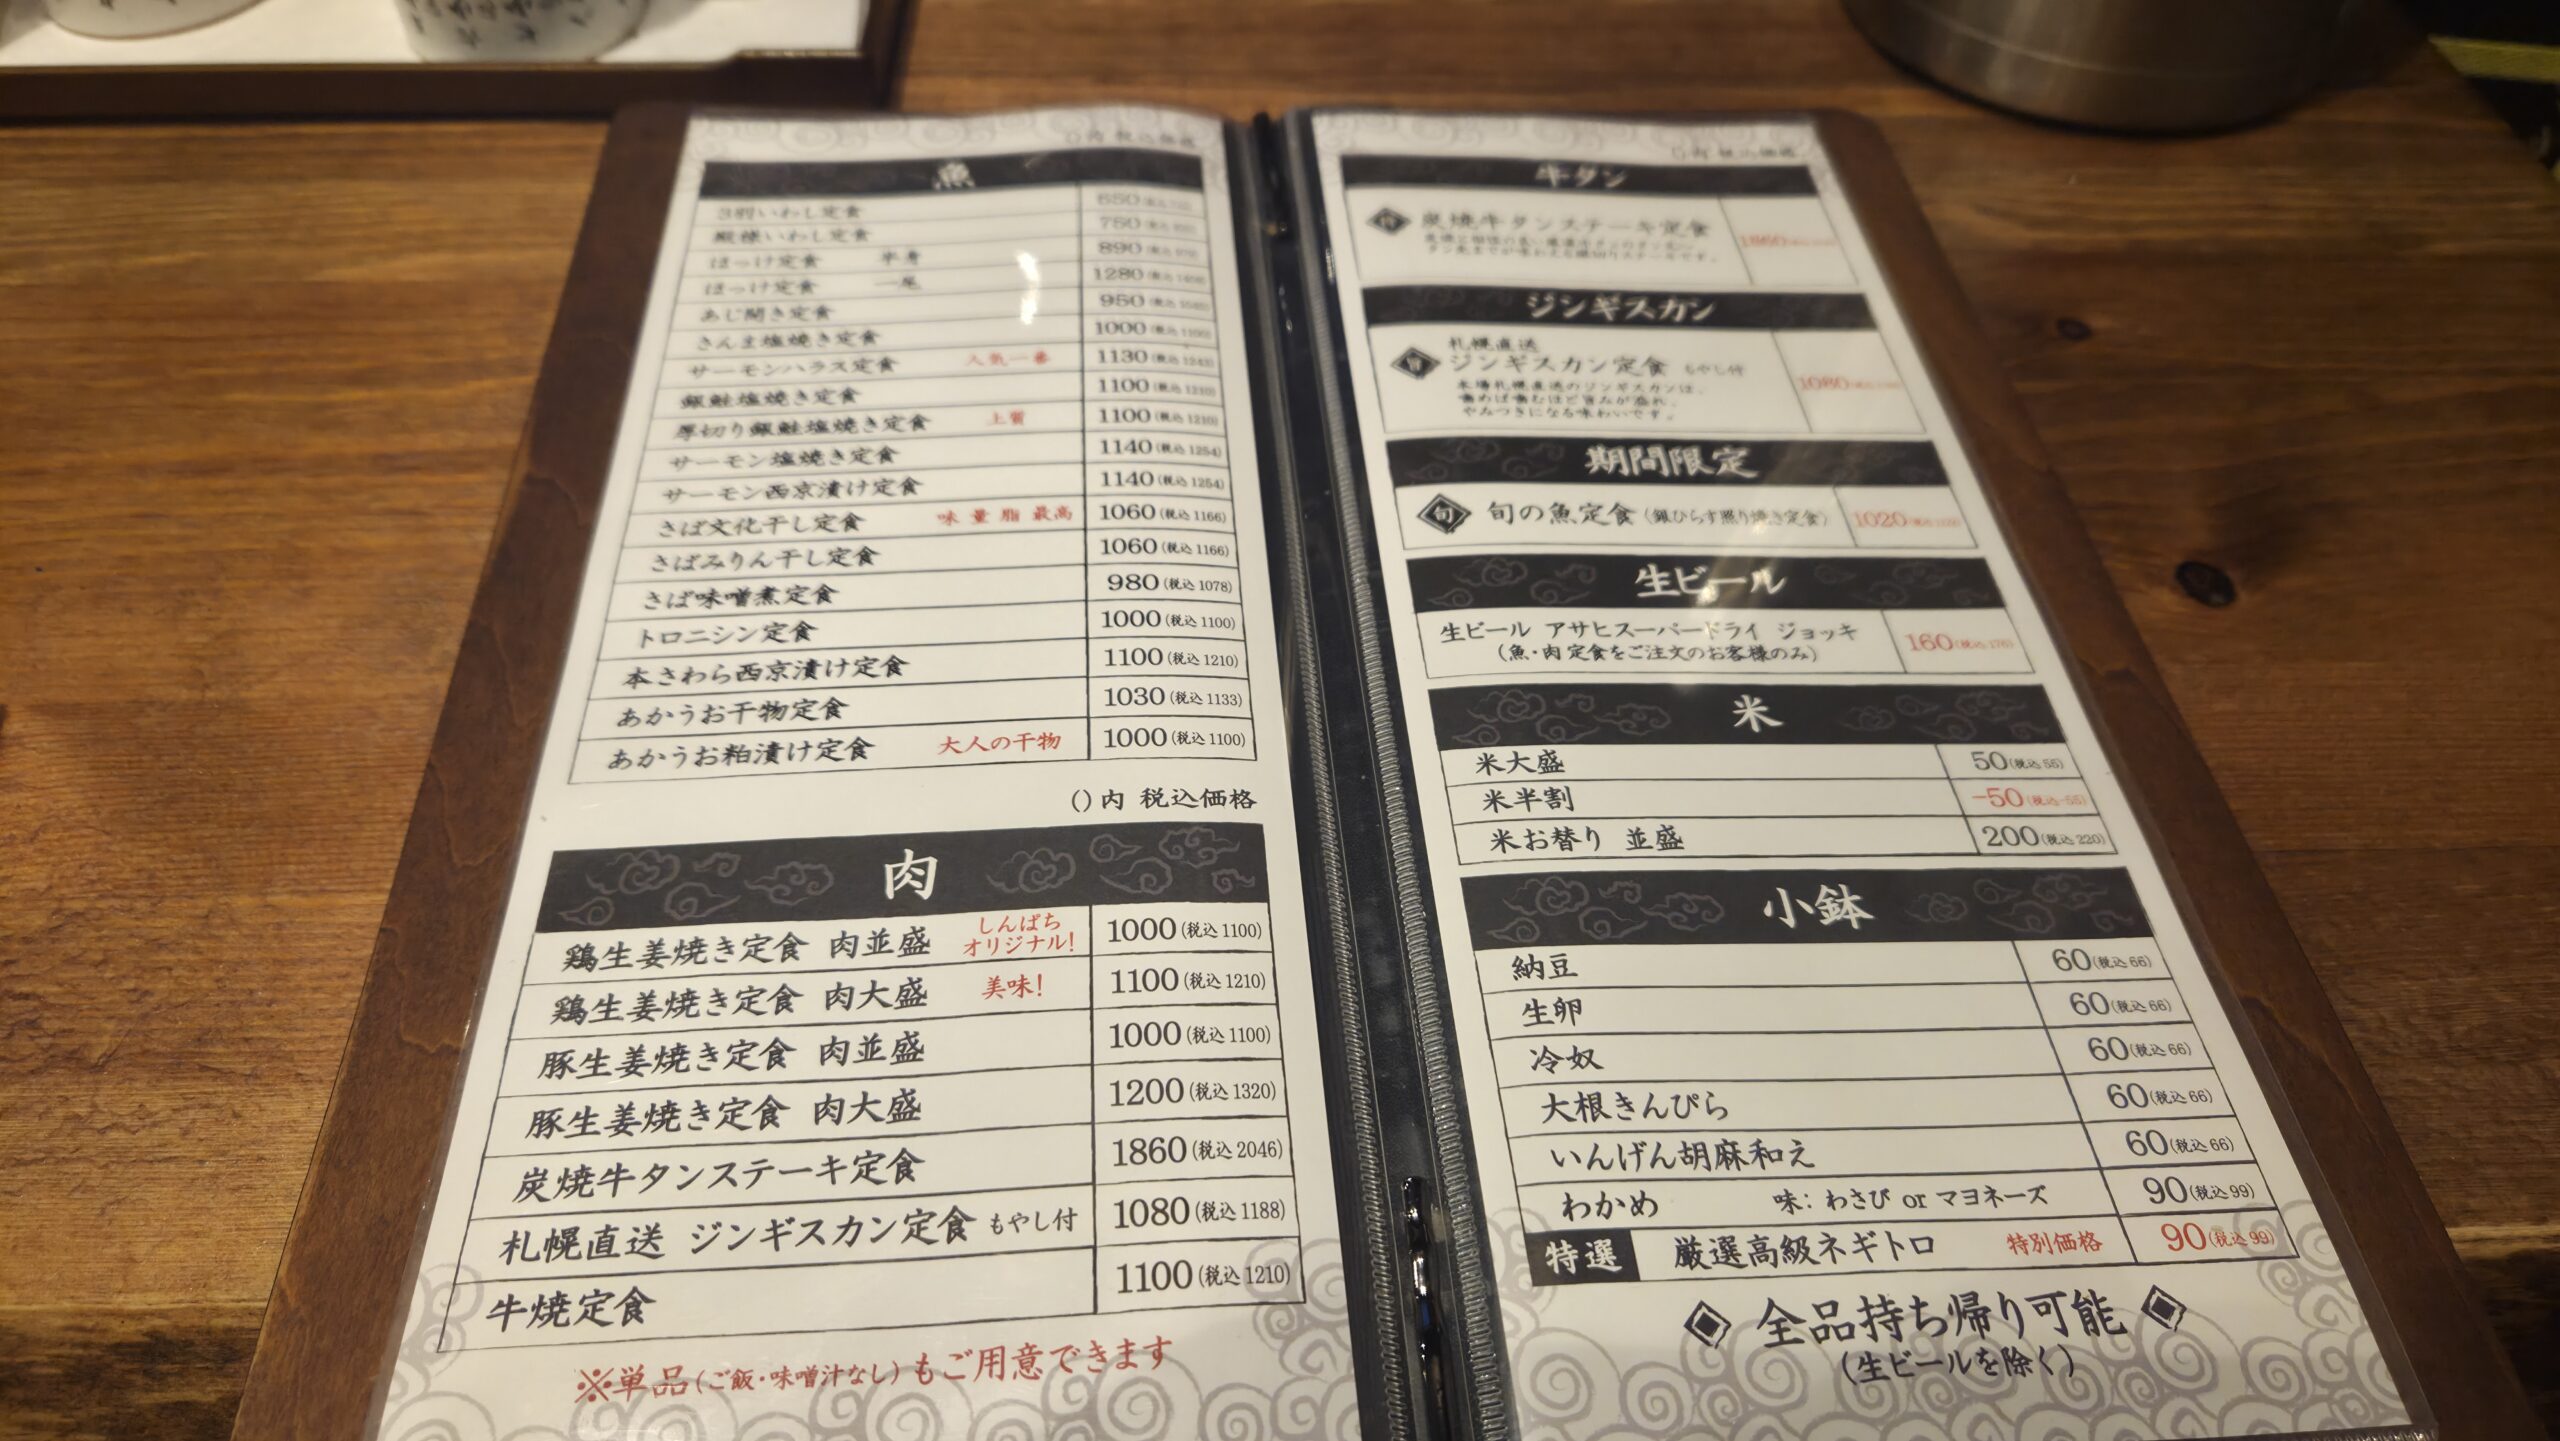 ()内 税込価格
魚
3羽いわし定食 650
殿様いわし定食 750
ほっけ定食 半身 890
ほっけ定食 一尾 1280
あじ開き定食 950
さんま塩焼き定食 1000(税込1100)
サーモンハラス定食 人気一番 1130(税込1243)
銀鮭塩焼き定食 1100(税込1210)
厚切り銀鮭塩焼き定食 上質 1100(税込1210)
サーモン塩焼き定食 1140(税込1254)
サーモン西京漬け定食 1140(税込1254)
さば文化干し定食 味 量 脂 最高 1060(税込1166)
さばみりん干し定食 1060(税込1166)
さば味噌煮定食 980(税込1078)
トロニシン定食 1000(税込1100)
本さわら西京漬け定食 1100(税込1210)
あかうお干物定食 1030(税込1133)
あかうお粕漬け定食 大人の干物 1000(税込1100)
()内 税込価格
肉
鶏生姜焼き定食 肉並盛 しんぱちオリジナル! 1000(税込1100)
鶏生姜焼き定食 肉大盛 美味! 1100(税込1210)
豚生姜焼き定食 肉並盛 1000(税込1100)
豚生姜焼き定食 肉大盛 1200(税込1320)
炭焼牛タンステーキ定食 1860(税込2046)
札幌直送 ジンギスカン定食 もやし付 1080(税込1188)
牛焼定食 1100(税込1210)
※単品(ご飯・味噌汁なし)もご用意できます
()内 税込価格
牛タン
炭焼牛タンステーキ定食 1860
ジンギスカン
札幌直送
ジンギスカン定食 もやし付 1080
本場札幌直送のジンギスカンは、
噛めば噛むほど旨みが溢れ、
やみつきになる味わいです。
期間限定
旬 旬の魚定食(銀ひらす照り焼き定食) 1020
生ビール
生ビール アサヒスーパードライ ジョッキ 160(税込176)
(魚・肉定食をご注文のお客様のみ)
米
米大盛 50(税込55)
米半割 -50(税込-55)
米お替り 並盛 200(税込220)
小鉢
納豆 60(税込66)
生卵 60(税込66)
冷奴 60(税込66)
大根きんぴら 60(税込66)
いんげん胡麻和え 60(税込66)
わかめ 味:わさび or マヨネーズ 90(税込99)
特選 厳選高級ネギトロ 特別価格 90(税込99)
全品持ち帰り可能
(生ビールを除く)